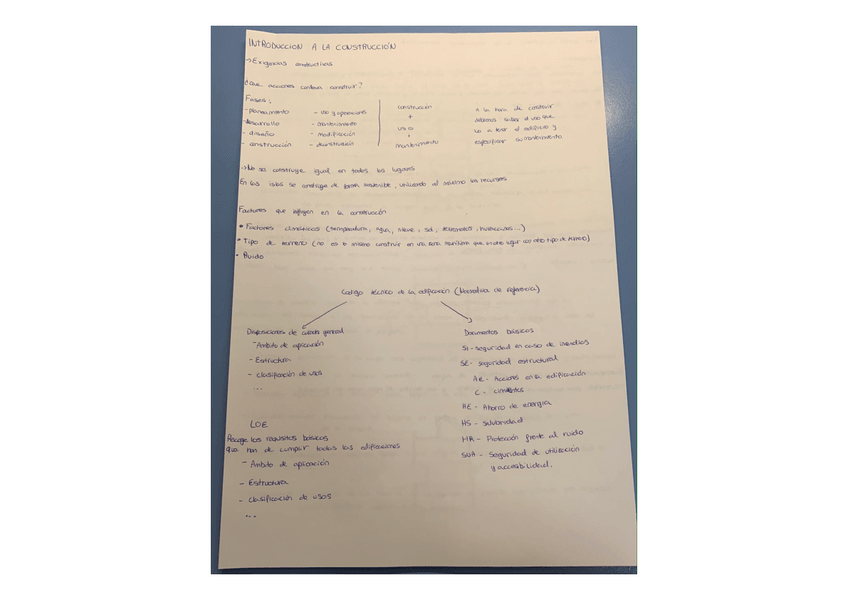 INTRODUCCION A LA CONSTRUCCIÓN
→ Exigencias constructivas
¿Que acciones conlleva construir?
Fases:
- planeamiento
- desarrollo
- diseño
- construcción
- uso y operaciones
- mantenimiento
- modificación
- deconstrucción
construcción
+
uso
+
mantenimiento
A la hora de construir
debemos saber el uso que
va a tener el edificio y
especificar su mantenimiento
→ No se construye igual en todos los lugares
En las islas se construye de forma sostenible, utilizando al máximo los recursos
Factores que influyen en la construcción
• Factores climáticos (temperatura, agua, nieve, sol, terremotos, huracanes...)
• Tipo de terreno (no es lo mismo construir en una zona que en otro lugar con otro tipo de)
• Ruido
Código técnico de la edificación (Normativa de referencia)
Disposiciones de carácter general
- Ámbito de aplicación
- Estructura
- clasificación de usos
...
Documentos básicos
SI - seguridad en caso de incendios
SE - seguridad estructural
AE - Acciones en la edificación
C - cimientos
HE - Ahorro de energía
HS - salubridad
HR - Protección frente al ruido
SUA - Seguridad de utilización
y accesibilidad.
LOE
Recoge los requisitos básicos
que han de cumplir todas las edificaciones
- Ámbito de aplicación
- Estructura
- clasificación de usos
...